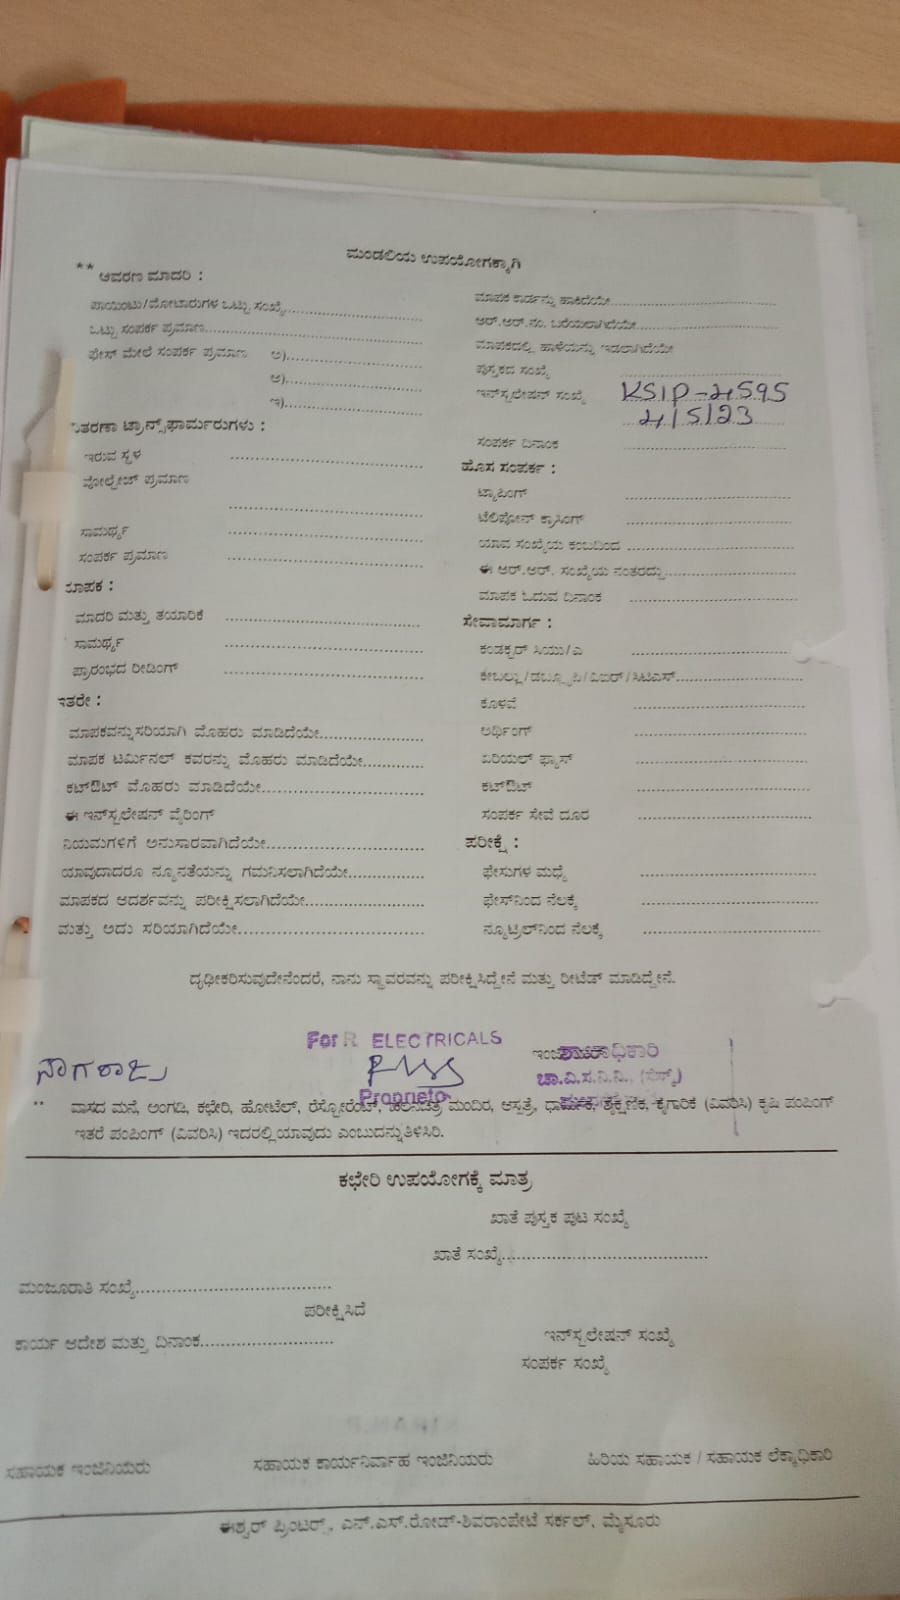 ಮಂಡಲಿಯ ಉಪಯೋಗಕ್ಕಾಗಿ
** ಆವರಣ ಮಾದರಿ :
ಪಾಯಿಂಟು/ಮೋಟಾರುಗಳ ಒಟ್ಟು ಸಂಖ್ಯೆ
ಒಟ್ಟು ಸಂಪರ್ಕ ಪ್ರಮಾಣ
ಫೇಸ್ ಮೇಲೆ ಸಂಪರ್ಕ ಪ್ರಮಾಣ ಅ)
ಆ)
ಇ)
ತರಣಾ ಟ್ರಾನ್ಸ್‌ಫಾರ್ಮರುಗಳು :
ಇರುವ ಸ್ಥಳ
ವೋಲ್ಟೇಜ್ ಪ್ರಮಾಣ
ಸಾಮರ್ಥ್ಯ
ಸಂಪರ್ಕ ಪ್ರಮಾಣ
ಮಾಪಕ :
ಮಾದರಿ ಮತ್ತು ತಯಾರಿಕೆ
ಸಾಮರ್ಥ್ಯ
ಪ್ರಾರಂಭದ ರೀಡಿಂಗ್
ಇತರೇ :
ಮಾಪಕವನ್ನು ಸರಿಯಾಗಿ ಮೊಹರು ಮಾಡಿದೆಯೇ
ಮಾಪಕ ಟರ್ಮಿನಲ್ ಕವರನ್ನು ಮೊಹರು ಮಾಡಿದೆಯೇ
ಕಟ್‌ಔಟ್ ಮೊಹರು ಮಾಡಿದೆಯೇ
ಈ ಇನ್‌ಸ್ಟಲೇಷನ್ ವೈರಿಂಗ್
ನಿಯಮಗಳಿಗೆ ಅನುಸಾರವಾಗಿದೆಯೇ
ಯಾವುದಾದರೂ ನ್ಯೂನತೆಯನ್ನು ಗಮನಿಸಲಾಗಿದೆಯೇ
ಮಾಪಕದ ಆದರ್ಶವನ್ನು ಪರೀಕ್ಷಿಸಲಾಗಿದೆಯೇ
ಮತ್ತು ಅದು ಸರಿಯಾಗಿದೆಯೇ
ಮಾಪಕ ಕಾರ್ಡನ್ನು ಹಾಕಿದೆಯೇ
ಆರ್.ಆರ್.ನಂ. ಬರೆಯಲಾಗಿದೆಯೇ
ಮಾಪಕದಲ್ಲಿ ಹಾಳೆಯನ್ನು ಇಡಲಾಗಿದೆಯೇ
ಪುಸ್ತಕದ ಸಂಖ್ಯೆ
ಇನ್‌ಸ್ಟಲೇಷನ್ ಸಂಖ್ಯೆ KSIP-4595
4/5/23
ಸಂಪರ್ಕ ದಿನಾಂಕ
ಹೊಸ ಸಂಪರ್ಕ :
ಟ್ಯಾಪಿಂಗ್
ಟೆಲಿಫೋನ್ ಕ್ರಾಸಿಂಗ್
ಯಾವ ಸಂಖ್ಯೆಯ ಕಂಬದಿಂದ
ಈ ಆರ್.ಆರ್. ಸಂಖ್ಯೆಯ ನಂತರದ್ದು
ಮಾಪಕ ಓದುವ ದಿನಾಂಕ
ಸೇವಾಮಾರ್ಗ :
ಕಂಡಕ್ಟರ್ ಸಿಯು/ಎ
ಕೇಬಲ್ಲು/ಡಬ್ಲ್ಯೂಪಿ/ವಿಐಆರ್/ಸಿಟಿಎಸ್
ಕೊಳವೆ
ಅರ್ಥಿಂಗ್
ಏರಿಯಲ್ ಫ್ಯೂಸ್
ಕಟ್‌ಔಟ್
ಸಂಪರ್ಕ ಸೇವೆ ದೂರ
ಪರೀಕ್ಷೆ :
ಫೇಸುಗಳ ಮಧ್ಯೆ
ಫೇಸ್‌ನಿಂದ ನೆಲಕ್ಕೆ
ನ್ಯೂಟ್ರಲ್‌ನಿಂದ ನೆಲಕ್ಕೆ
ದೃಢೀಕರಿಸುವುದೇನೆಂದರೆ, ನಾನು ಸ್ಥಾವರವನ್ನು ಪರೀಕ್ಷಿಸಿದ್ದೇನೆ ಮತ್ತು ರೀಟೆಡ್ ಮಾಡಿದ್ದೇನೆ.
For R ELECTRICALS
ನಾಗರಾಜು
ಶಾಖಾಧಿಕಾರಿ
ಚಾ.ವಿ.ಸ.ನಿ.ನಿ.,
Proprieto
** ವಾಸದ ಮನೆ, ಅಂಗಡಿ, ಕಛೇರಿ, ಹೋಟೆಲ್, ರೆಸ್ಟೋರೆಂಟ್, ಚಲನಚಿತ್ರ ಮಂದಿರ, ಆಸ್ಪತ್ರೆ, ಧಾರ್ಮಿಕ, ಶೈಕ್ಷಣಿಕ, ಕೈಗಾರಿಕೆ (ವಿವರಿಸಿ) ಕೃಷಿ ಪಂಪಿಂಗ್
ಇತರೆ ಪಂಪಿಂಗ್ (ವಿವರಿಸಿ) ಇದರಲ್ಲಿ ಯಾವುದು ಎಂಬುದನ್ನು ತಿಳಿಸಿರಿ.
ಕಛೇರಿ ಉಪಯೋಗಕ್ಕೆ ಮಾತ್ರ
ಖಾತೆ ಪುಸ್ತಕ ಪುಟ ಸಂಖ್ಯೆ
ಖಾತೆ ಸಂಖ್ಯೆ
ಮಂಜೂರಾತಿ ಸಂಖ್ಯೆ
ಪರೀಕ್ಷಿಸಿದೆ
ಕಾರ್ಯ ಆದೇಶ ಮತ್ತು ದಿನಾಂಕ
ಇನ್‌ಸ್ಟಲೇಷನ್ ಸಂಖ್ಯೆ
ಸಂಪರ್ಕ ಸಂಖ್ಯೆ
ಸಹಾಯಕ ಇಂಜಿನಿಯರು ಸಹಾಯಕ ಕಾರ್ಯನಿರ್ವಾಹ ಇಂಜಿನಿಯರು ಹಿರಿಯ ಸಹಾಯಕ / ಸಹಾಯಕ ಲೆಕ್ಕಾಧಿಕಾರಿ
ಈಶ್ವರ್ ಪ್ರಿಂಟರ್ಸ್, ಎನ್.ಎಸ್.ರೋಡ್-ಶಿವರಾಂಪೇಟೆ ಸರ್ಕಲ್, ಮೈಸೂರು